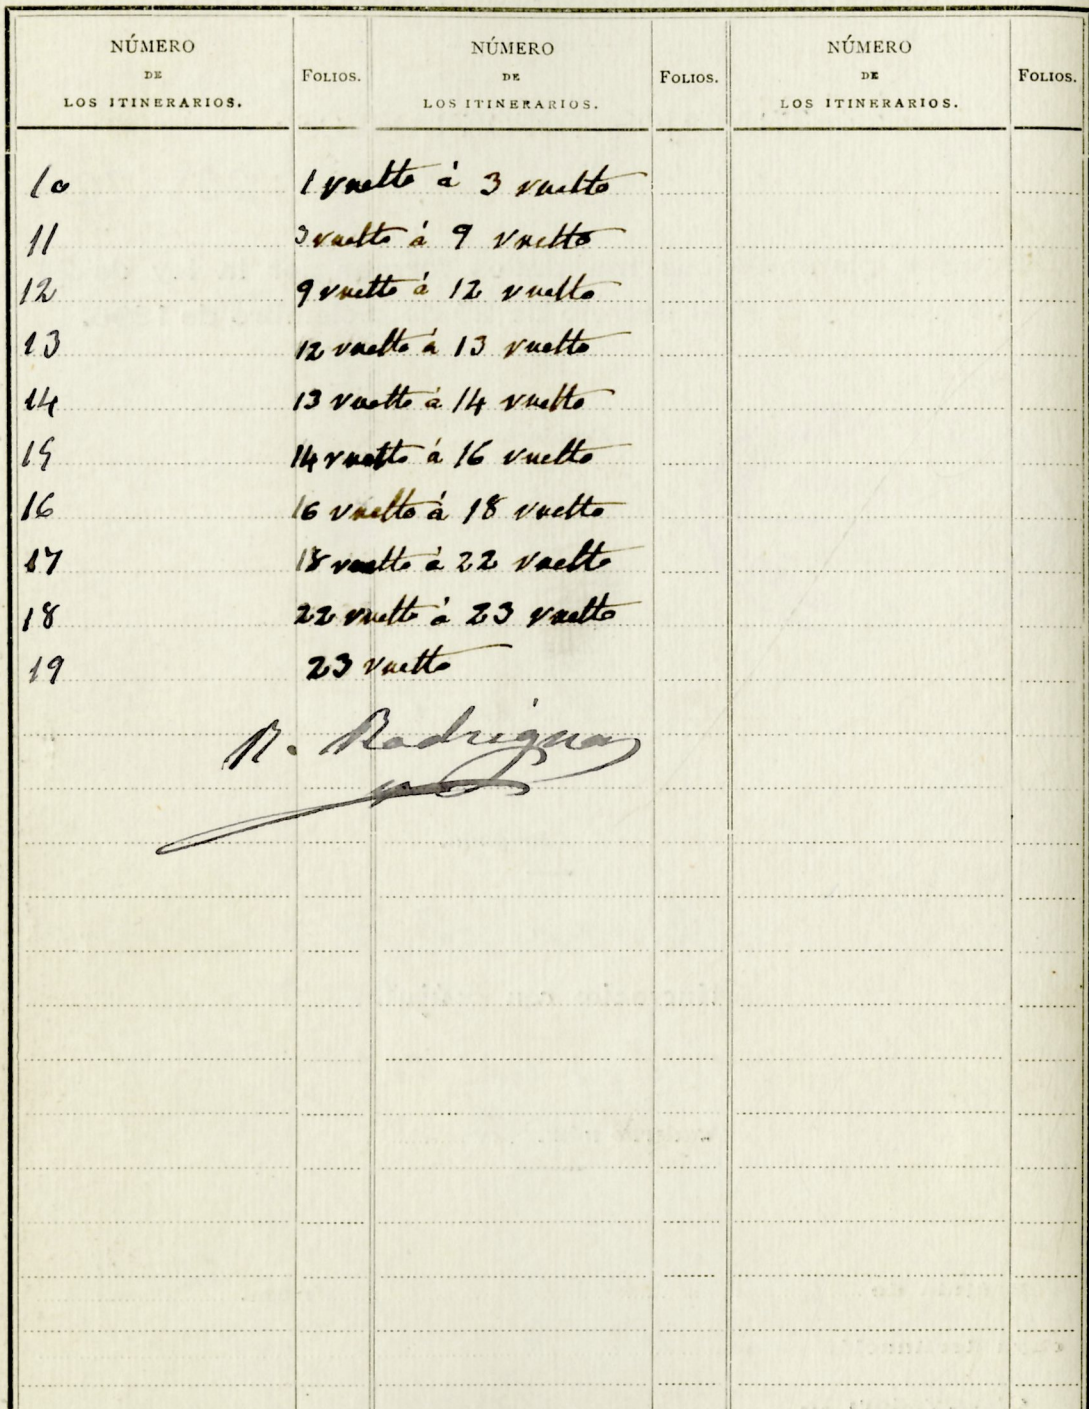 NÚMERO DE LOS ITINERARIOS. FOLIOS. NÚMERO DE LOS ITINERARIOS. FOLIOS. NÚMERO DE LOS ITINERARIOS. FOLIOS.
10 1 vuelto á 3 vuelto
11 3 vuelto á 9 vuelto
12 9 vuelto á 12 vuelto
13 12 vuelto á 13 vuelto
14 13 vuelto á 14 vuelto
15 14 vuelto á 16 vuelto
16 16 vuelto á 18 vuelto
17 18 vuelto á 22 vuelto
18 22 vuelto á 23 vuelto
19 23 vuelto
R. Rodriguez